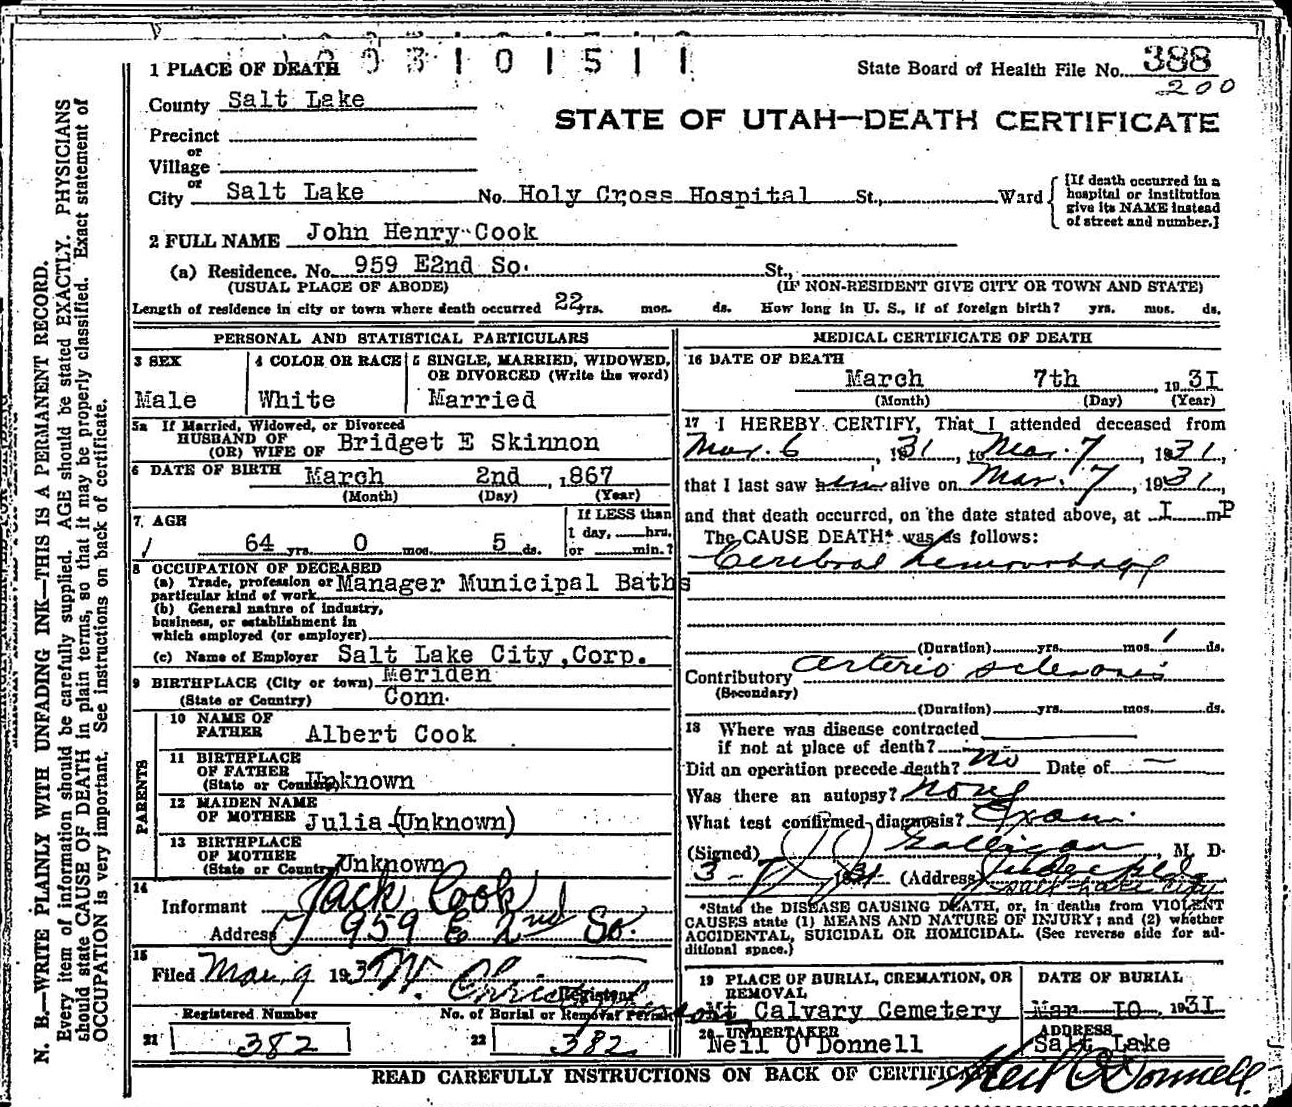 1 PLACE OF DEATH
State Board of Health File No. 388
200
County Salt Lake
STATE OF UTAH—DEATH CERTIFICATE
Precinct
or
Village
or
City Salt Lake No. Holy Cross Hospital St., Ward
[If death occurred in a hospital or institution give its NAME instead of street and number.]
2 FULL NAME John Henry Cook
(a) Residence. No. 959 E2nd So. St.,
(USUAL PLACE OF ABODE) (IF NON-RESIDENT GIVE CITY OR TOWN AND STATE)
Length of residence in city or town where death occurred 22 yrs. mos. ds. How long in U. S., if of foreign birth? yrs. mos. ds.
PERSONAL AND STATISTICAL PARTICULARS
3 SEX 4 COLOR OR RACE 5 SINGLE, MARRIED, WIDOWED, OR DIVORCED (Write the word)
Male White Married
5a If Married, Widowed, or Divorced
HUSBAND OF
(OR) WIFE OF Bridget E Skinnon
6 DATE OF BIRTH March 2nd , 1867
(Month) (Day) (Year)
7. AGE If LESS than
1 day, hrs.
64 yrs. 0 mos. 5 ds. or min.?
8 OCCUPATION OF DECEASED
(a) Trade, profession or
particular kind of work Manager Municipal Baths
(b) General nature of industry,
business, or establishment in
which employed (or employer)
(c) Name of Employer Salt Lake City ,Corp.
9 BIRTHPLACE (City or town) Meriden
(State or Country) Conn.
PARENTS
10 NAME OF
FATHER Albert Cook
11 BIRTHPLACE
OF FATHER
(State or Country) Unknown
12 MAIDEN NAME
OF MOTHER Julia (Unknown)
13 BIRTHPLACE
OF MOTHER
(State or Country) Unknown
14
Informant Jack Cook
Address 959 E 2nd So.
15
Filed Mar. 9 193
Registrar
Registered Number No. of Burial or Removal Permit
21 382 22 382
MEDICAL CERTIFICATE OF DEATH
16 DATE OF DEATH
March 7th , 1931
(Month) (Day) (Year)
17 I HEREBY CERTIFY, That I attended deceased from
Mar. 6 , 1931, to Mar. 7 , 1931,
that I last saw him alive on Mar. 7 , 1931,
and that death occurred, on the date stated above, at I mP
The CAUSE DEATH* was as follows:
Cerebral hemorrhage
(Duration) yrs. mos. 1 ds.
Contributory arterio sclerosis
(Secondary)
(Duration) yrs. mos. ds.
18 Where was disease contracted
if not at place of death?
Did an operation precede death? no Date of —
Was there an autopsy? none
What test confirmed diagnosis? Exam.
(Signed) Galligan , M. D.
3-7 1931 (Address) Judge Bldg
Salt Lake City
*State the DISEASE CAUSING DEATH, or, in deaths from VIOLENT
CAUSES state (1) MEANS AND NATURE OF INJURY; and (2) whether
ACCIDENTAL, SUICIDAL OR HOMICIDAL. (See reverse side for ad-
ditional space.)
19 PLACE OF BURIAL, CREMATION, OR REMOVAL DATE OF BURIAL
Mt Calvary Cemetery Mar 10 , 1931
20 UNDERTAKER ADDRESS
Neil O'Donnell Salt Lake
READ CAREFULLY INSTRUCTIONS ON BACK OF CERTIFICATE
Neil O'Donnell
N. B.—WRITE PLAINLY WITH UNFADING INK—THIS IS A PERMANENT RECORD.
Every item of information should be carefully supplied. AGE should be stated EXACTLY. PHYSICIANS
should state CAUSE OF DEATH in plain terms, so that it may be properly classified. Exact statement of
OCCUPATION is very important. See instructions on back of certificate.